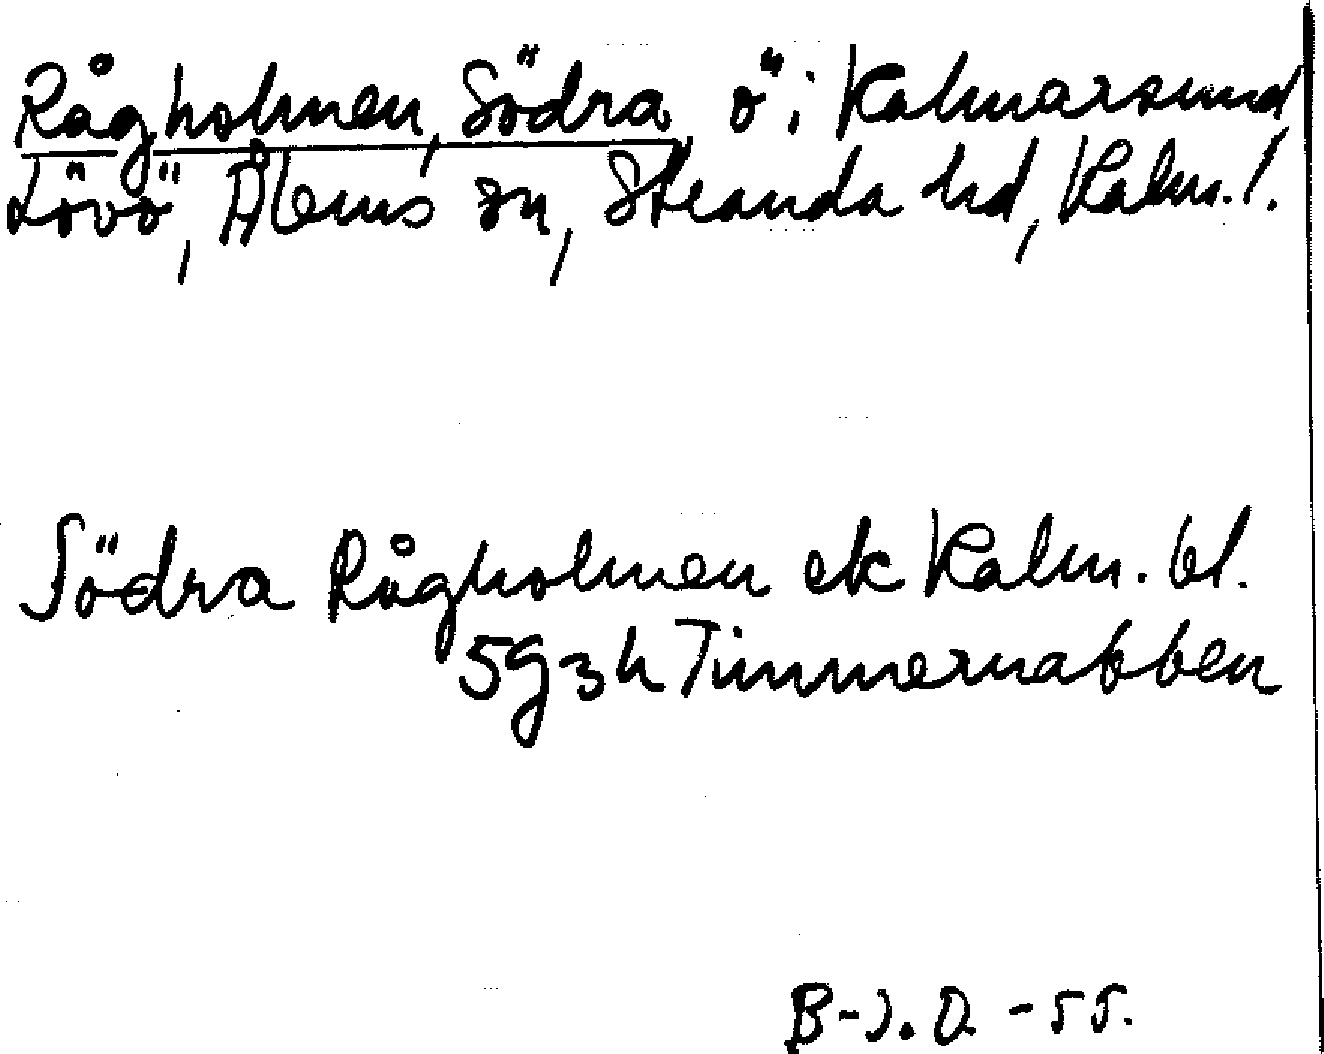 Rågholmen, Södra, ö i Kalmarsund
Lövö, Ålems sn, Stranda hd, Kalm. l.
Södra Rågholmen ek Kalm. bl.
5g3h Timmernabben
B-J. O. -55.